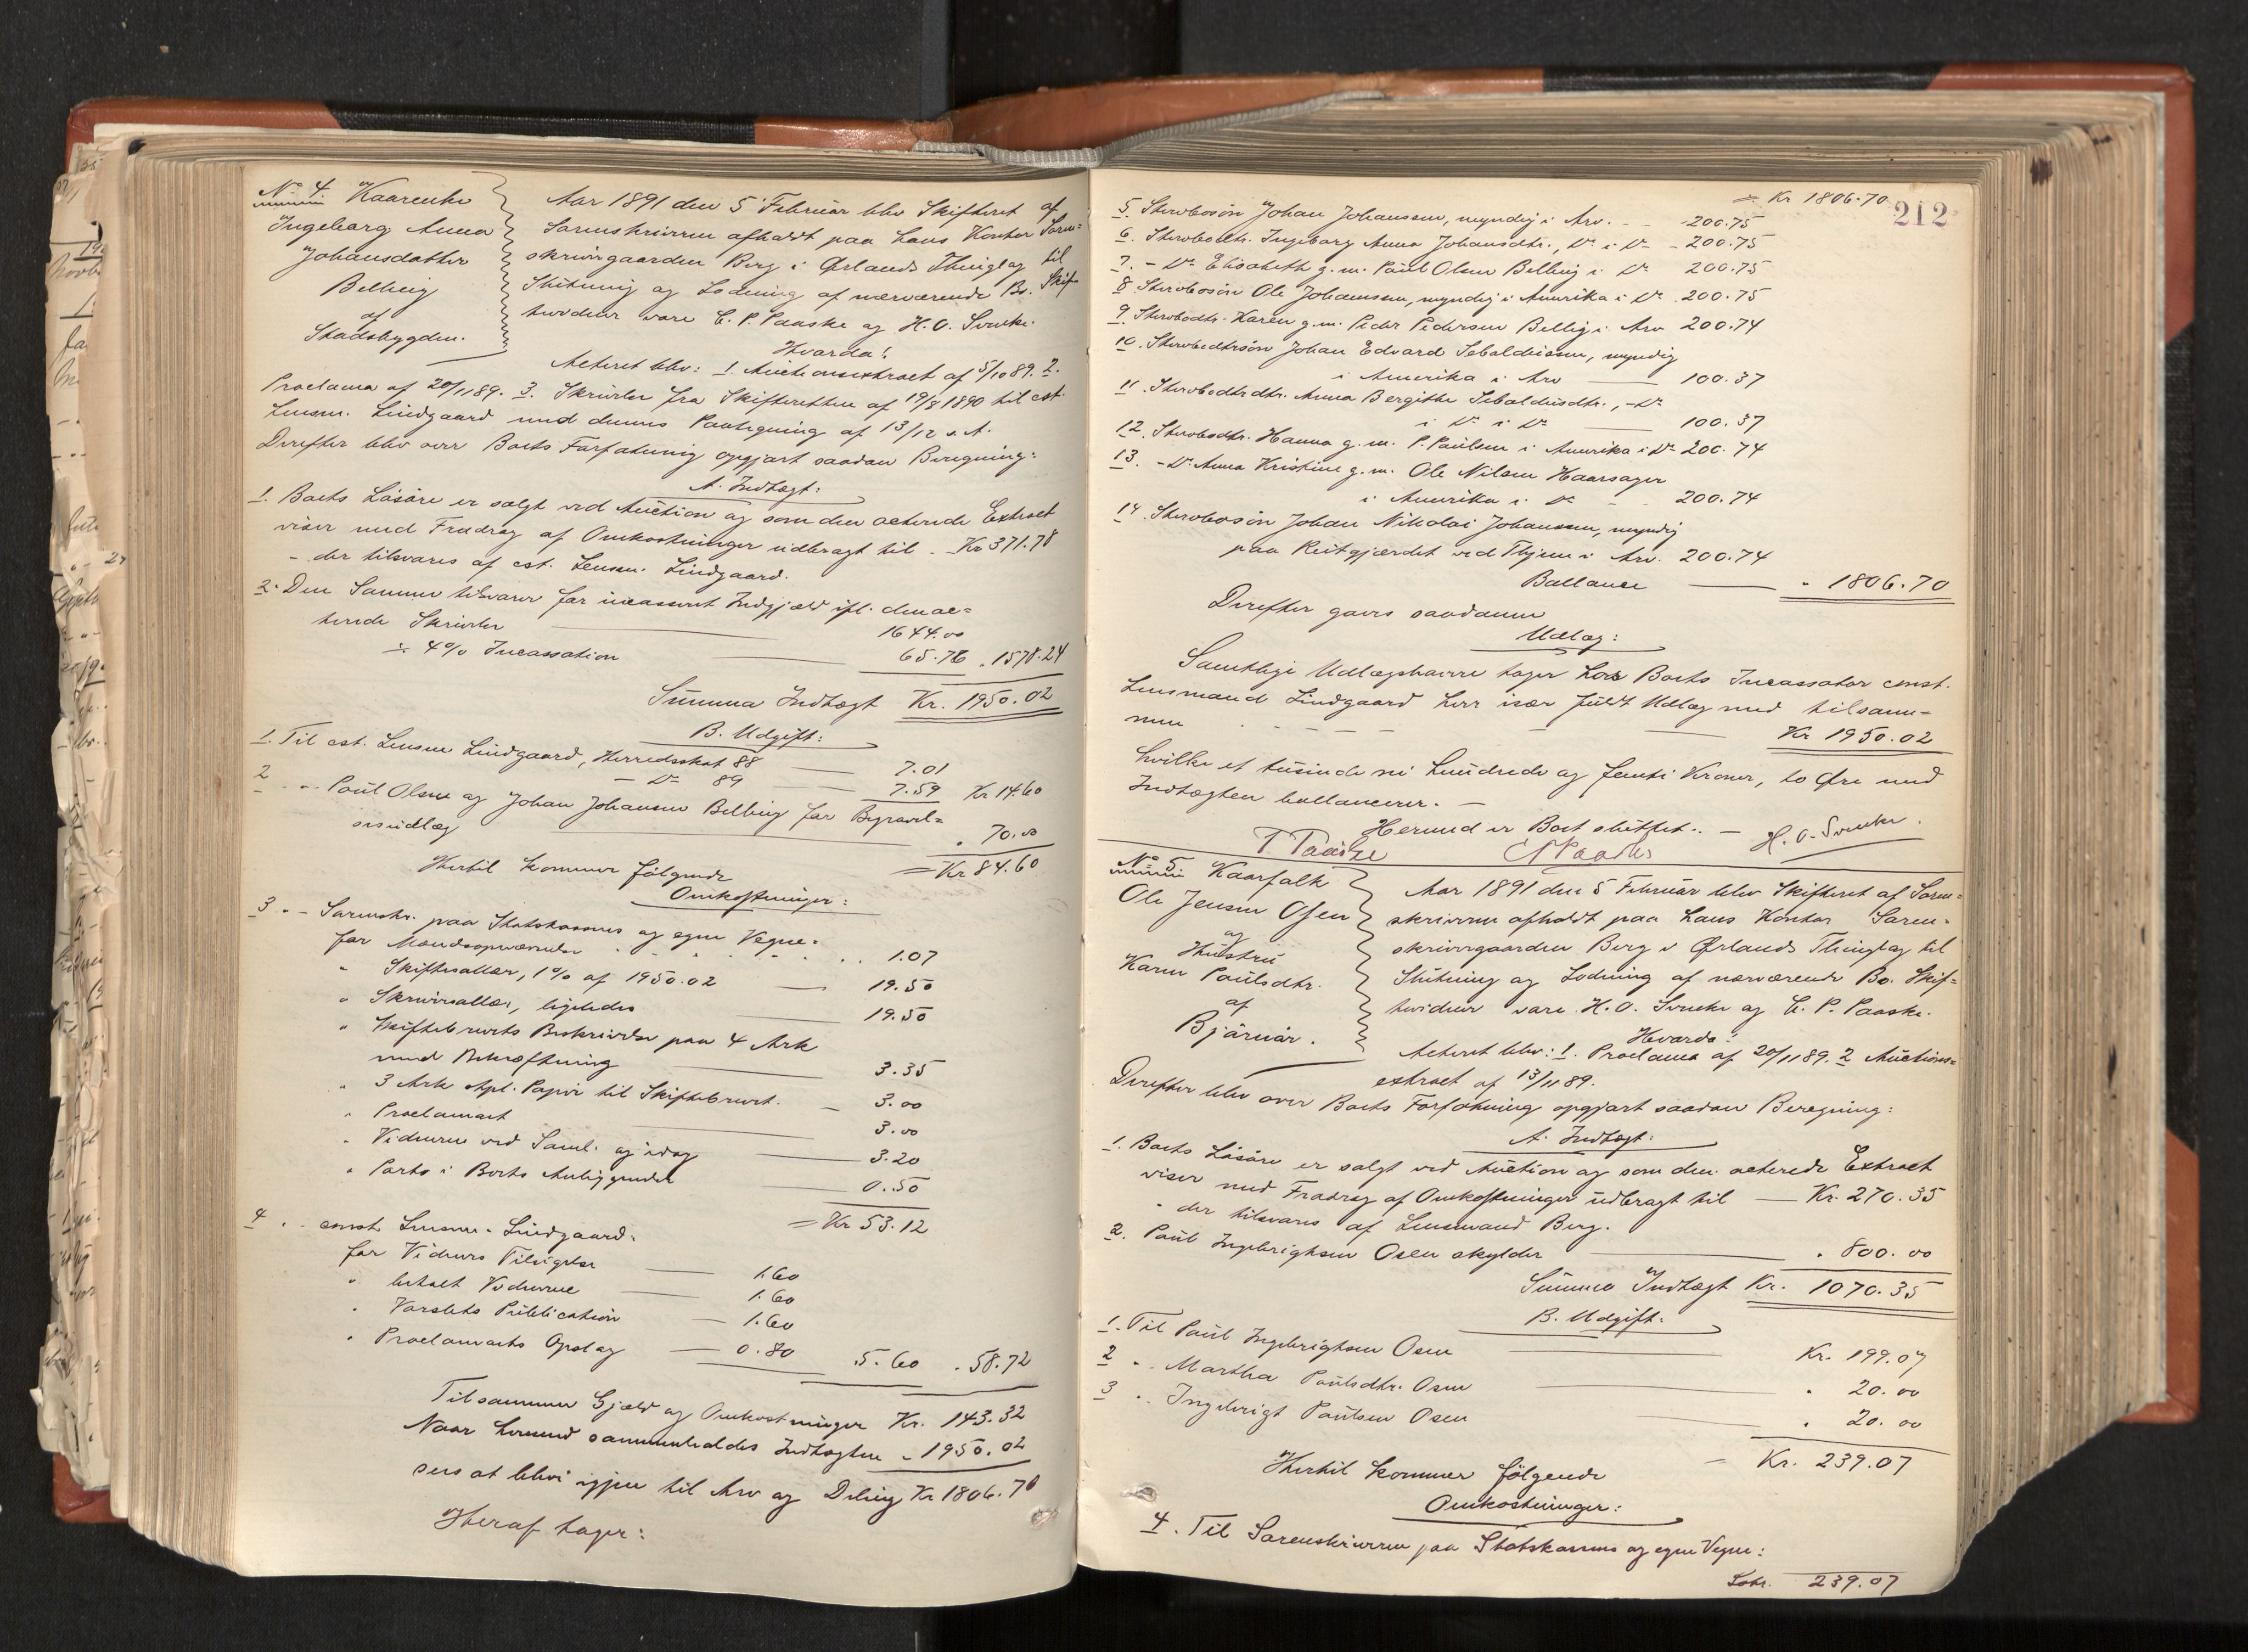 No 4. Kaarenke
Ingeborg Anna
Johansdatter
Belbuig
af
Stadsbygden.
Aar 1891 den 5 Februar blev Skifteret af
Sorenskriveren afholdt paa hans Kontor Soren=
skrivergaarden Berg i Ørlands Thinglag til
Slutning og Lodning af nærværende Bo. Skif-
tevidner vare C. P. Paaske og H. O. Svenke.
Hvorda:
Acteret blev: 1. Auctionsextract af 5/10 89. 2.
Proclama af 20/11 89. 3. Skrivelse fra Skifteretten af 19/8 1890 til cst.
Lensm. Lindgaard med dennes Paategning af 13/12 s. A.
Derefter blev over Boets Forfatning opgjort saadan Beregning:
A. Indtægt:
1. Boets Løsøre er solgt ved Auction og som den acterede Extract
viser med Fradrag af Omkostninger udbragt til - Kr 371.78
- der tilsvares af cst. Lensm. Lindgaard.
2. Den Samme tilsvarer for incasseret Indgjæld ifl. den ac=
terede Skrivelse 1644.00
÷ 4% Incassation 65.76 " 1578.24
Summa Indtægt Kr. 1950.02
B. Udgift:
1. Til cst. Lensm Lindgaard, Herredsskat 88 7.01
- Do 89 7.59 Kr 14.60
2 " - Paul Olsen og Johan Johansen Belbuig for Begravel=
sesudlæg " 70.00
= Kr 84.60
Hertil kommer følgende
Omkostninger:
3 " - Sorenskr. paa Statskassens og egne Vegne:
for Mandsopnævnelse 1.07
" Skiftesallær, 1% af 1950.02 19.50
" Skriversallær, ligeledes 19.50
" Skiftebrevets Beskrivelse paa 4 Ark
med Bekræftning 3.35
" 3 Ark stpl. Papir til Skiftebrevet. 3.00
" Proclamaet 3.00
" Vidnerne ved Saml. og idag 3.20
" Porto i Boets Anliggender 0.50
= Kr 53.12
4 " - const. Lensm. Lindgaard:
for Vidners Tilsigelse 1.60
" betalt Vidnerne 1.60
" Varslets Publication 1.60
" Proclamaets Opslag 0.80 5.60 " 58.72
Tilsammen Gjæld og Omkostninger Kr. 143.32
Naar hermed sammenholdes Indtægten " 1950.02
sees at blive igjen til Arv og Deling Kr 1806.70
Heraf tager:
= Kr 1806.70
212
5. Stervbosøn Johan Johansen, myndig i Arv. - 200.75
6. Stervbodtr. Ingeborg Anna Johansdtr., Do i Do - 200.75
7. - Do Elisabeth g. m. Paul Olsen Belbuig i Do 200.75
8. Stervbosøn Ole Johansen, myndig i Amerika i Do 200.75
9. Stervbodtr. Karen g. m. Peder Pedersen Belbuig i Arv 200.74
10. Stervbodtrsøn Johan Edvard Sebaldussen, myndig
i Amerika i Arv 100.37
11. Stervbodtrdtr. Anna Bergitte Sebaldusdtr., - Do
i Do i Do 100.37
12. Stervbodtr. Hanna g. m. P. Paulsen i Amerika i Do 200.74
13. - Do Anna Kristine g. m. Ole Nilsen Haarsager
i Amerika i Do 200.74
14. Stervbosøn Johan Nikolai Johansen, myndig
paa Reitgjærdet ved Thjem i Arv. 200.74
Ballance " 1806.70
Derefter gaves saadanne
Udlæg:
Samtlige Udlægshavere tager hos Boets Incassator const.
Lensmand Lindgaard hver især fuldt Udlæg med tilsam=
men Kr 1950.02
hvilke et tusinde ni hundrede og femti Kroner, to Øre med
Indtægten ballancerer. -
Hermed er Boet sluttet. - H. O. Svenke.
No 5. Kaarfolk
Ole Jensen Osen
og
Hustru
Karen Paulsdtr.
af
Bjørnør.
Aar 1891 den 5 Februar blev Skifteret af Soren=
skriveren afholdt paa hans Kontor Soren-
skrivergaarden Berg i Ørlands Thinglag til
Slutning og Lodning af nærværende Bo. Skif=
tevidner vare H. O. Svenke og C. P. Paaske.
Hvorda:
Acteret blev: 1. Proclama af 20/11 89. 2 Auctions=
extract af 13/11 89.
Derefter blev over Boets Forfatning opgjort saadan Beregning:
A. Indtægt:
1. Boets Løsøre er solgt ved Auction og som den acterede Extract
viser med Fradrag af Omkostninger udbragt til - Kr. 270.35
- der tilsvares af Lensmand Berg.
2. Paul Ingebrigtsen Osen skylder " 800.00
Summa Indtægt Kr. 1070.35
B. Udgift:
1. Til Paul Ingebrigtsen Osen Kr. 199.07
2 " - Martha Paulsdtr. Osen " 20.00
3 " - Ingebrigt Paulsen Osen " 20.00
= Kr. 239.07
Hertil kommer følgende
Omkostninger:
4. Til Sorenskriveren paa Statskassens og egne Vegne:
Latr. 239.07